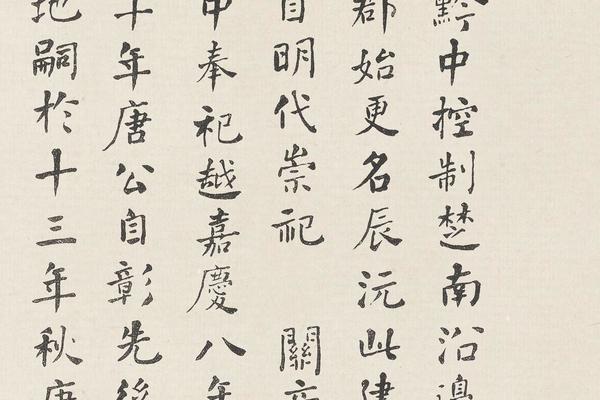 黔中控制楚南沿邊
郡始更名辰沅此建
自明代崇祀 關帝
中奉祀越嘉慶八年
十年唐公自彰先後
地嗣於十三年秋唐